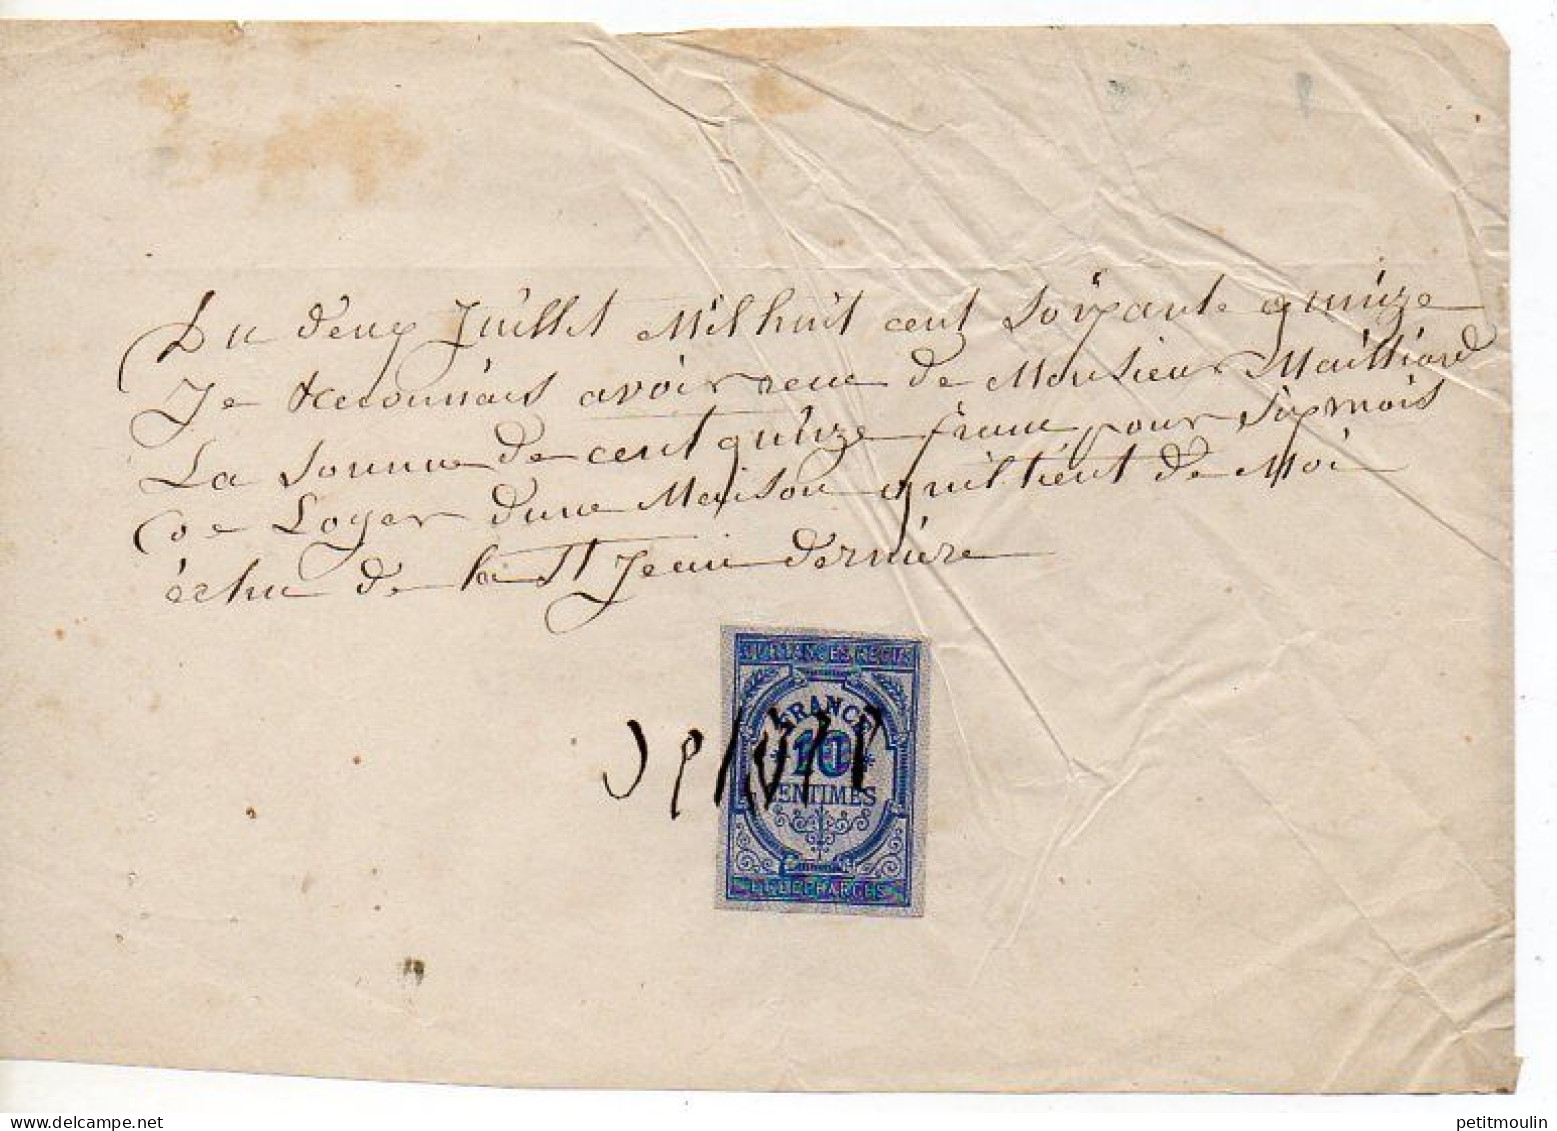 Du deux Juillet Mil huit cent soixante quinze
Je Reconnais avoir recu de Monsieur Mailliard
La somme de cent quinze franc pour six mois
de Loyer dune Maison quil tient de Moi
échu de la St Jean dernière
QUITTANCES REÇUS
FRANCE
10
CENTIMES
ET DECHARGES
www.delcampe.net
petitmoulin